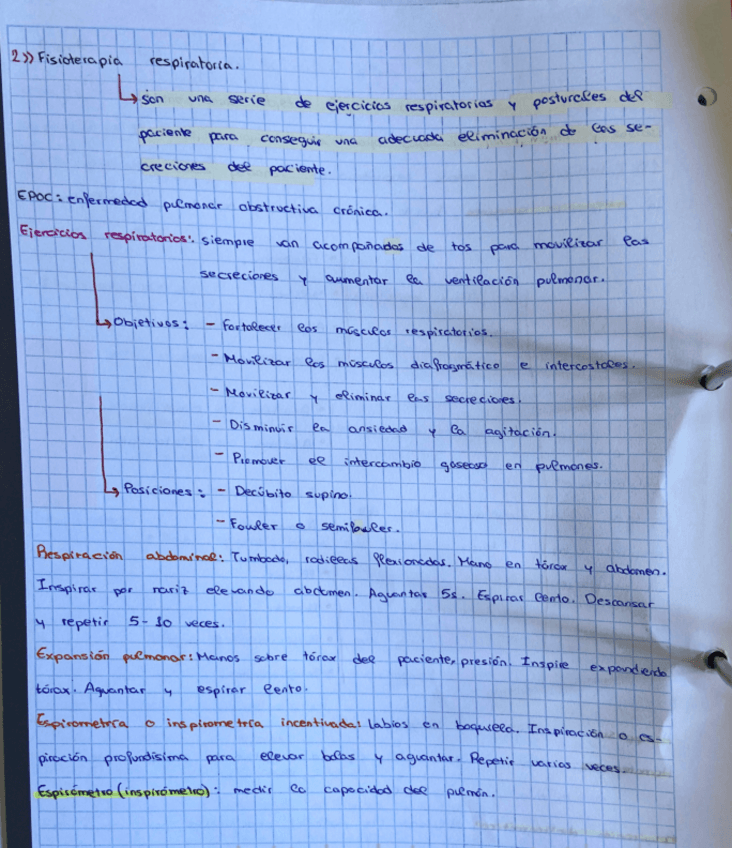 2)) Fisioterapia respiratoria.
son una serie de ejercicios respiratorios y posturales del
paciente para conseguir una adecuada eliminación de las se-
creciones del paciente.
EPOC: enfermedad pulmonar obstructiva crónica.
Ejercicios respiratorios: siempre van acompañados de tos para movilizar las
secreciones y aumentar la ventilación pulmonar.
Objetivos: - Fortalecer los músculos respiratorios.
- Movilizar los músculos diafragmático e intercostales.
- Movilizar y eliminar las secreciones.
- Disminuir la ansiedad y la agitación.
- Promover el intercambio gaseoso en pulmones.
Posiciones: - Decúbito supino.
- Fowler o semifowler.
Respiración abdominal: Tumbado, rodillas flexionadas. Mano en tórax y abdomen.
Inspirar por nariz elevando abdomen. Aguantar 5s. Espirar lento. Descansar
y repetir 5-10 veces.
Expansión pulmonar: Manos sobre tórax del paciente, presión. Inspire expandiendo
tórax. Aguantar y espirar lento.
Espirometría o inspirometría incentivada: Labios en boquilla. Inspiración o es-
piración profundísima para elevar bolas y aguantar. Repetir varias veces.
Espirómetro (inspirómetro): medir la capacidad del pulmón.